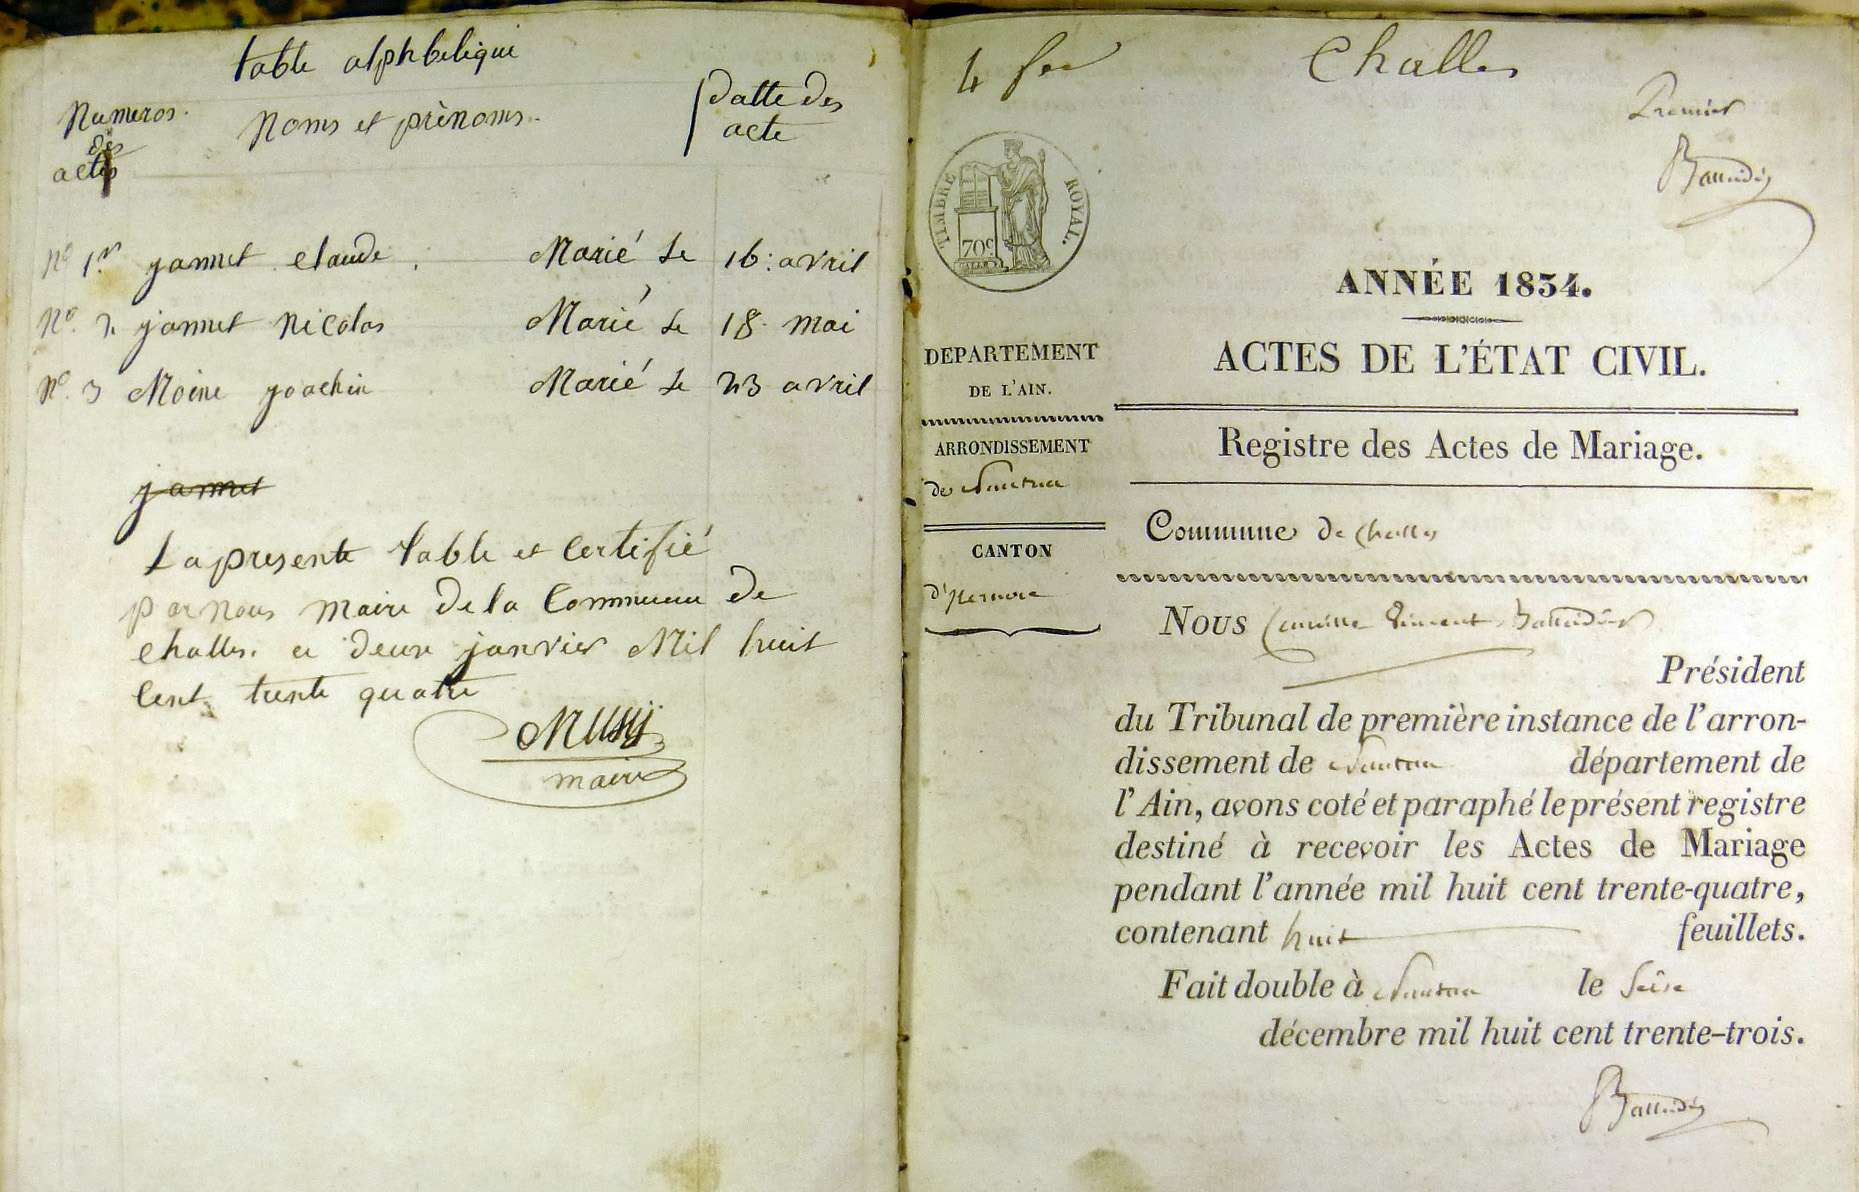 table alphbetiqui
Numeros.
des
actes
Noms et prènoms.
datte des
acte
No 1er jannet claude . Marié Le 16: avril
No. 2 jannet Nicolas Marié Le 18. mai
No. 3 Moine joachin Marié Le 23 avril
jannet
La presente table et Certifié
par nous maire de la Commune de
challes. ce deux janvier Mil huit
Cent trente quatre
maire
4 feu
Challes
Premier
TIMBRE ROYAL.
70c
ANNÉE 1834.
ACTES DE L'ÉTAT CIVIL.
Registre des Actes de Mariage.
DEPARTEMENT
DE L'AIN.
ARRONDISSEMENT
de Nantua
CANTON
d'izernore
Commune de Challes
Nous Camille Vincent Balleidier
Président
du Tribunal de première instance de l'arron-
dissement de Nantua département de
l'Ain, avons coté et paraphé le présent registre
destiné à recevoir les Actes de Mariage
pendant l'année mil huit cent trente-quatre,
contenant huit feuillets.
Fait double à Nantua le Seise
décembre mil huit cent trente-trois.